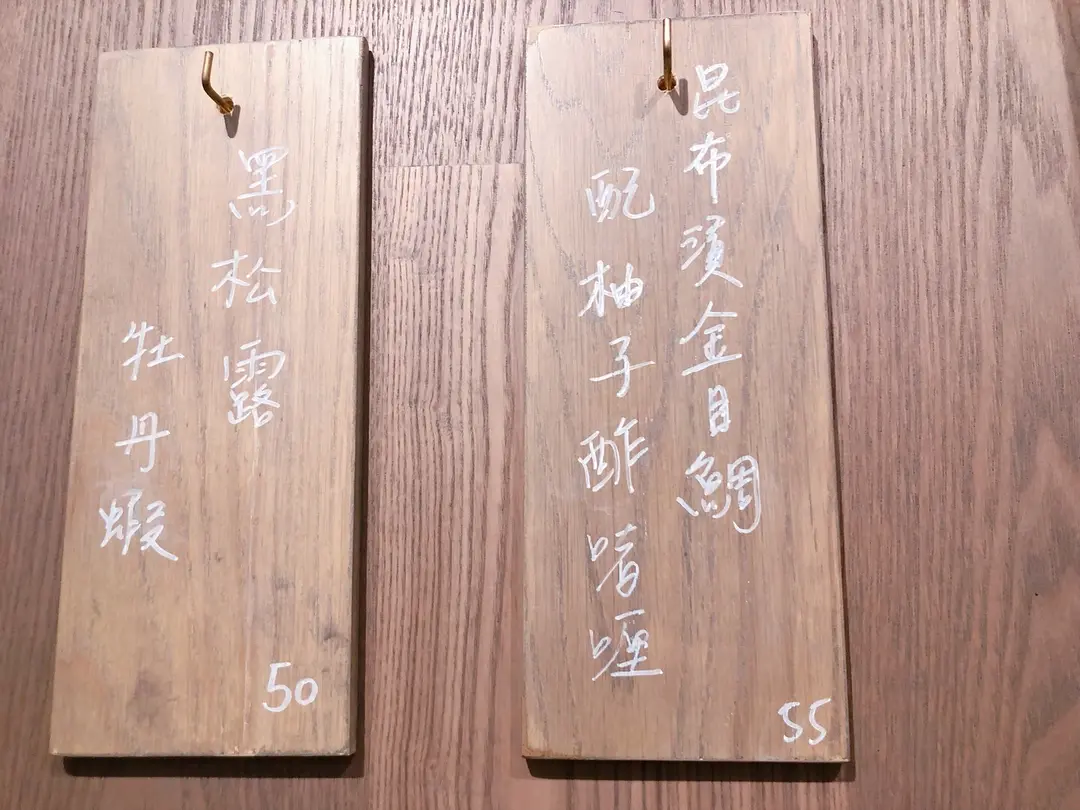 昆布漬金目鯛
配柚子酢啫喱
55
黑松露
牡丹蝦
50